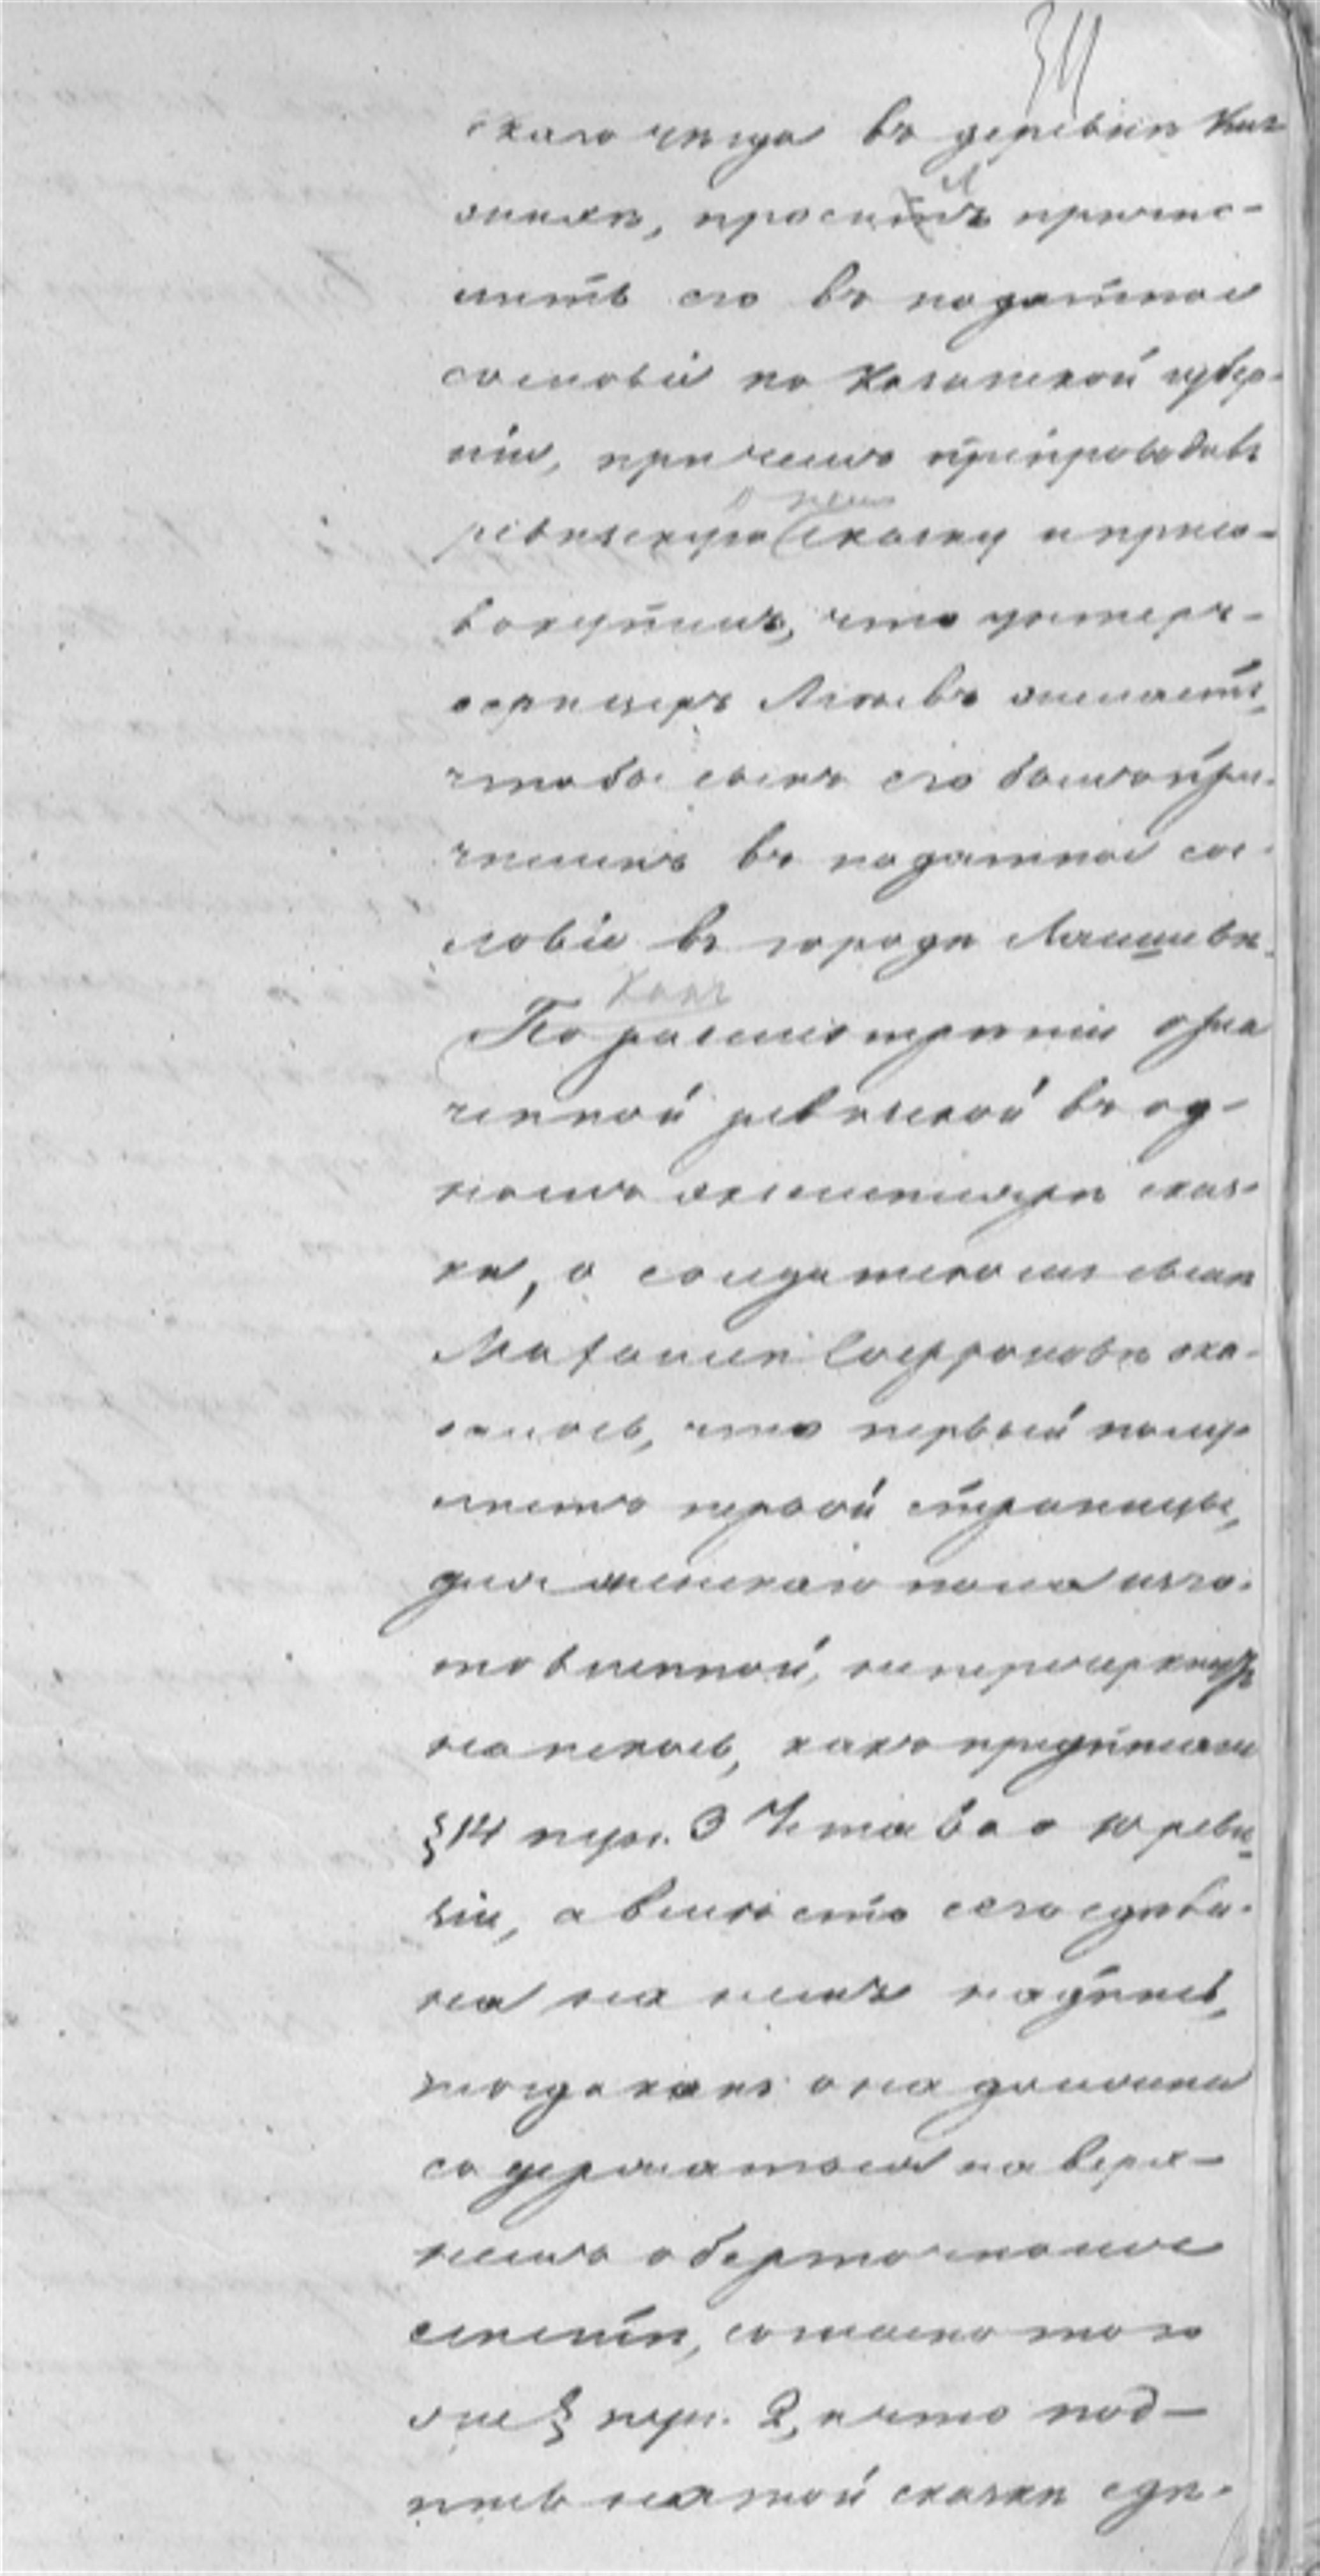 34
скаго уѣзда въ деревнѣ Кил
просилъ причис-
лить его въ податное
сословіе по Казанской губер-
ніи, при чемъ препроводивъ
о немъ
ревизскую сказку и присо-
вокупилъ, что унтеръ-
офицеръ желаетъ,
чтобы сынъ его былъ при-
численъ въ податное сос-
ловіе въ городѣ Лаишевѣ.
Какъ
По разсмотрѣніи озна
ченной ревизской въ од-
номъ экземплярѣ сказ-
ки, о солдатскомъ сынѣ
Сафроновѣ ока-
залось, что первый полу-
листъ первой страницы,
для женскаго пола изго-
товленной, не перечеркнутъ
наискось, какъ предписано
§ 14 пун. 3 Устава о 10 реви-
зіи, а вмѣсто сего сдѣла-
на на немъ надпись,
тогда какъ она должна
содержаться на верх-
немъ оберточномъ
листѣ, согласно того
же § пун. 2, и что под-
пись на той сказкѣ сдѣ-